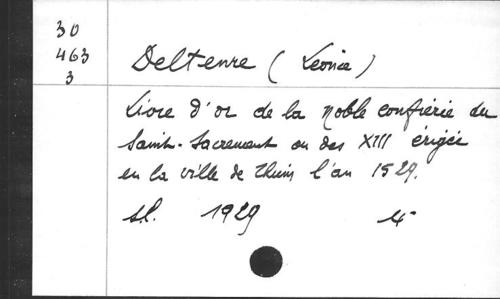 30
463
3
Deltenre (Leonce)
Livre d'or de la noble confrérie du
Saint-Sacrement ou des XIII érigée
en la ville de Thuin l'an 1529.
sl. 1929 4°